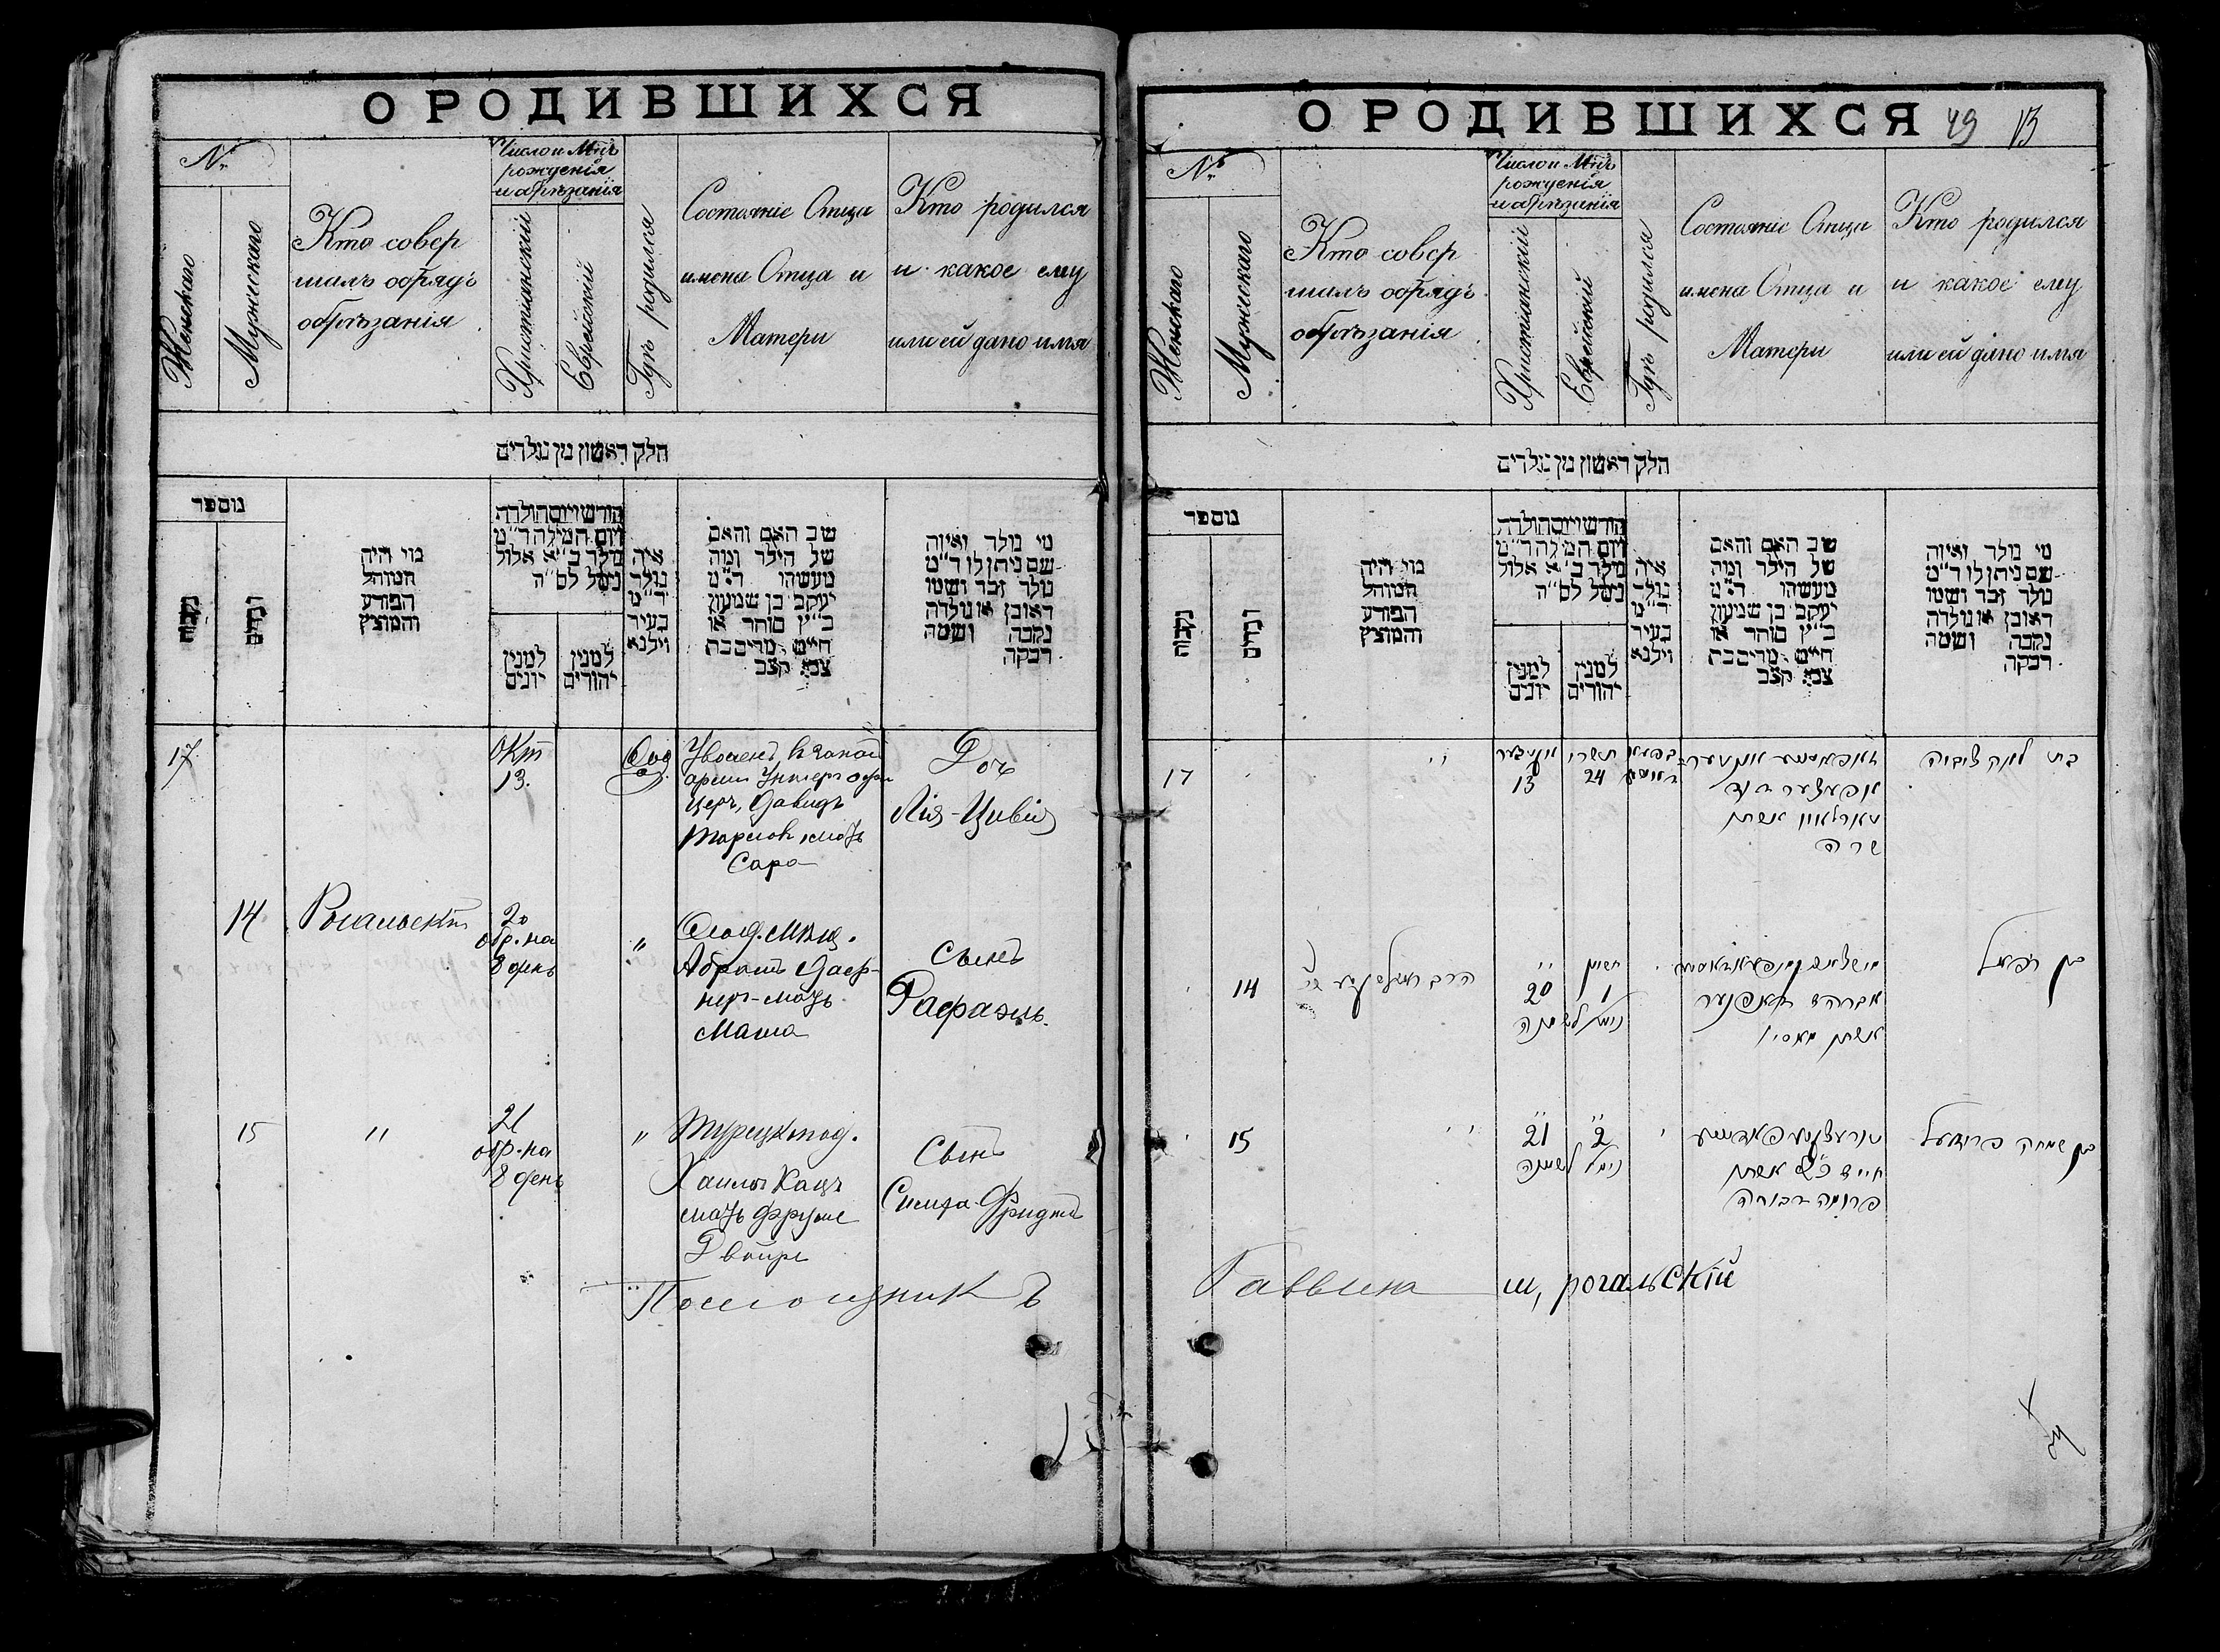 О РОДИВШИХСЯ
№
Женскаго
Мужескаго
Кто совер
шалъ обрядъ
обрѣзанія
Число и Мѣць
рожденія
и обрѣзанія
Христіанскій
Еврейскій
Гдѣ родился
Состояніе Отца
имена Отца и
Матери
Кто родился
и какое ему
или ей дано имя
חלק ראשון מן נולדים
מספר
נקבות
זכרים
מי היה
המוהל
הפורע
והמוצץ
חודש ויום הולדת
ויום המילה ד״מ
נולד ב״א אלול
נימל לס״ה
למנין
יונים
למנין
יהודים
איה
נולד
ד״מ
בעיר
ווילנא
שם האב והאם
של הילד ומה
מעשהו ד״מ
יעקב בן שמעון
כ״ץ סוחר או
חייט מרים בת
צבי קצב
מי נולד ואיזה
שם ניתן לו ד״מ
נולד זכר ושמו
ראובן או נולדה
נקבה ושמה
רבקה
17
Окт
13.
Уволен. в запас
армии Унтеръ офи
церъ, Давидъ
мать
Сара
Дочь
Лія-Цивія
14
20
обр. на
8 день
"
Абрамъ
мать
Маша
сынъ
Рафаэль.
15
"
21
обр. на
8 день
"
Турецкподд.
Хаимъ Кацъ
мать Фруме
Двойре
Сынъ
Симха-
О РОДИВШИХСЯ
49
№
Женскаго
Мужескаго
Кто совер
шалъ обрядъ
обрѣзанія
Число и Мѣць
рожденія
и обрѣзанія
Христіанскій
Еврейскій
Гдѣ родился
Состояніе Отца
имена Отца и
Матери
Кто родился
и какое ему
или ей дано имя
חלק ראשון מן נולדים
מספר
נקבות
זכרים
מי היה
המוהל
הפורע
והמוצץ
חודש ויום הולדת
ויום המילה ד״מ
נולד ב״א אלול
נימל לס״ה
למנין
יונים
למנין
יהודים
איה
נולד
ד״מ
בעיר
ווילנא
שם האב והאם
של הילד ומה
מעשהו ד״מ
יעקב בן שמעון
כ״ץ סוחר או
חייט מרים בת
צבי קצב
מי נולד ואיזה
שם ניתן לו ד״מ
נולד זכר ושמו
ראובן או נולדה
נקבה ושמה
רבקה
17
"
אקטבער
13
תשרי
24
אונטער
אפיצער דוד
אשתו
שרה
בת לאה ציביה
14
הרב
"
20
חשון
1
נימול לשמנה
אברהם
אשתו
בן רפאל
15
"
"
21
"
2
נימול לשמנה
חיים כ״ץ אשתו
פרומה דבורה
בן שמחה
Помощникъ Раввина ш, рогальскій